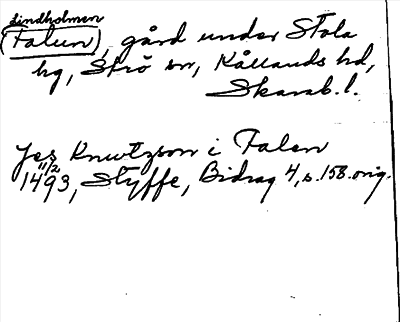 Lindholmen
(Falun), gård under Stola
hg, Strö sn, Kållands hd,
Skarab. l.
Jes Knutzson i Falen
11/2
1493, Styffe, Bidrag 4, s. 158. orig.